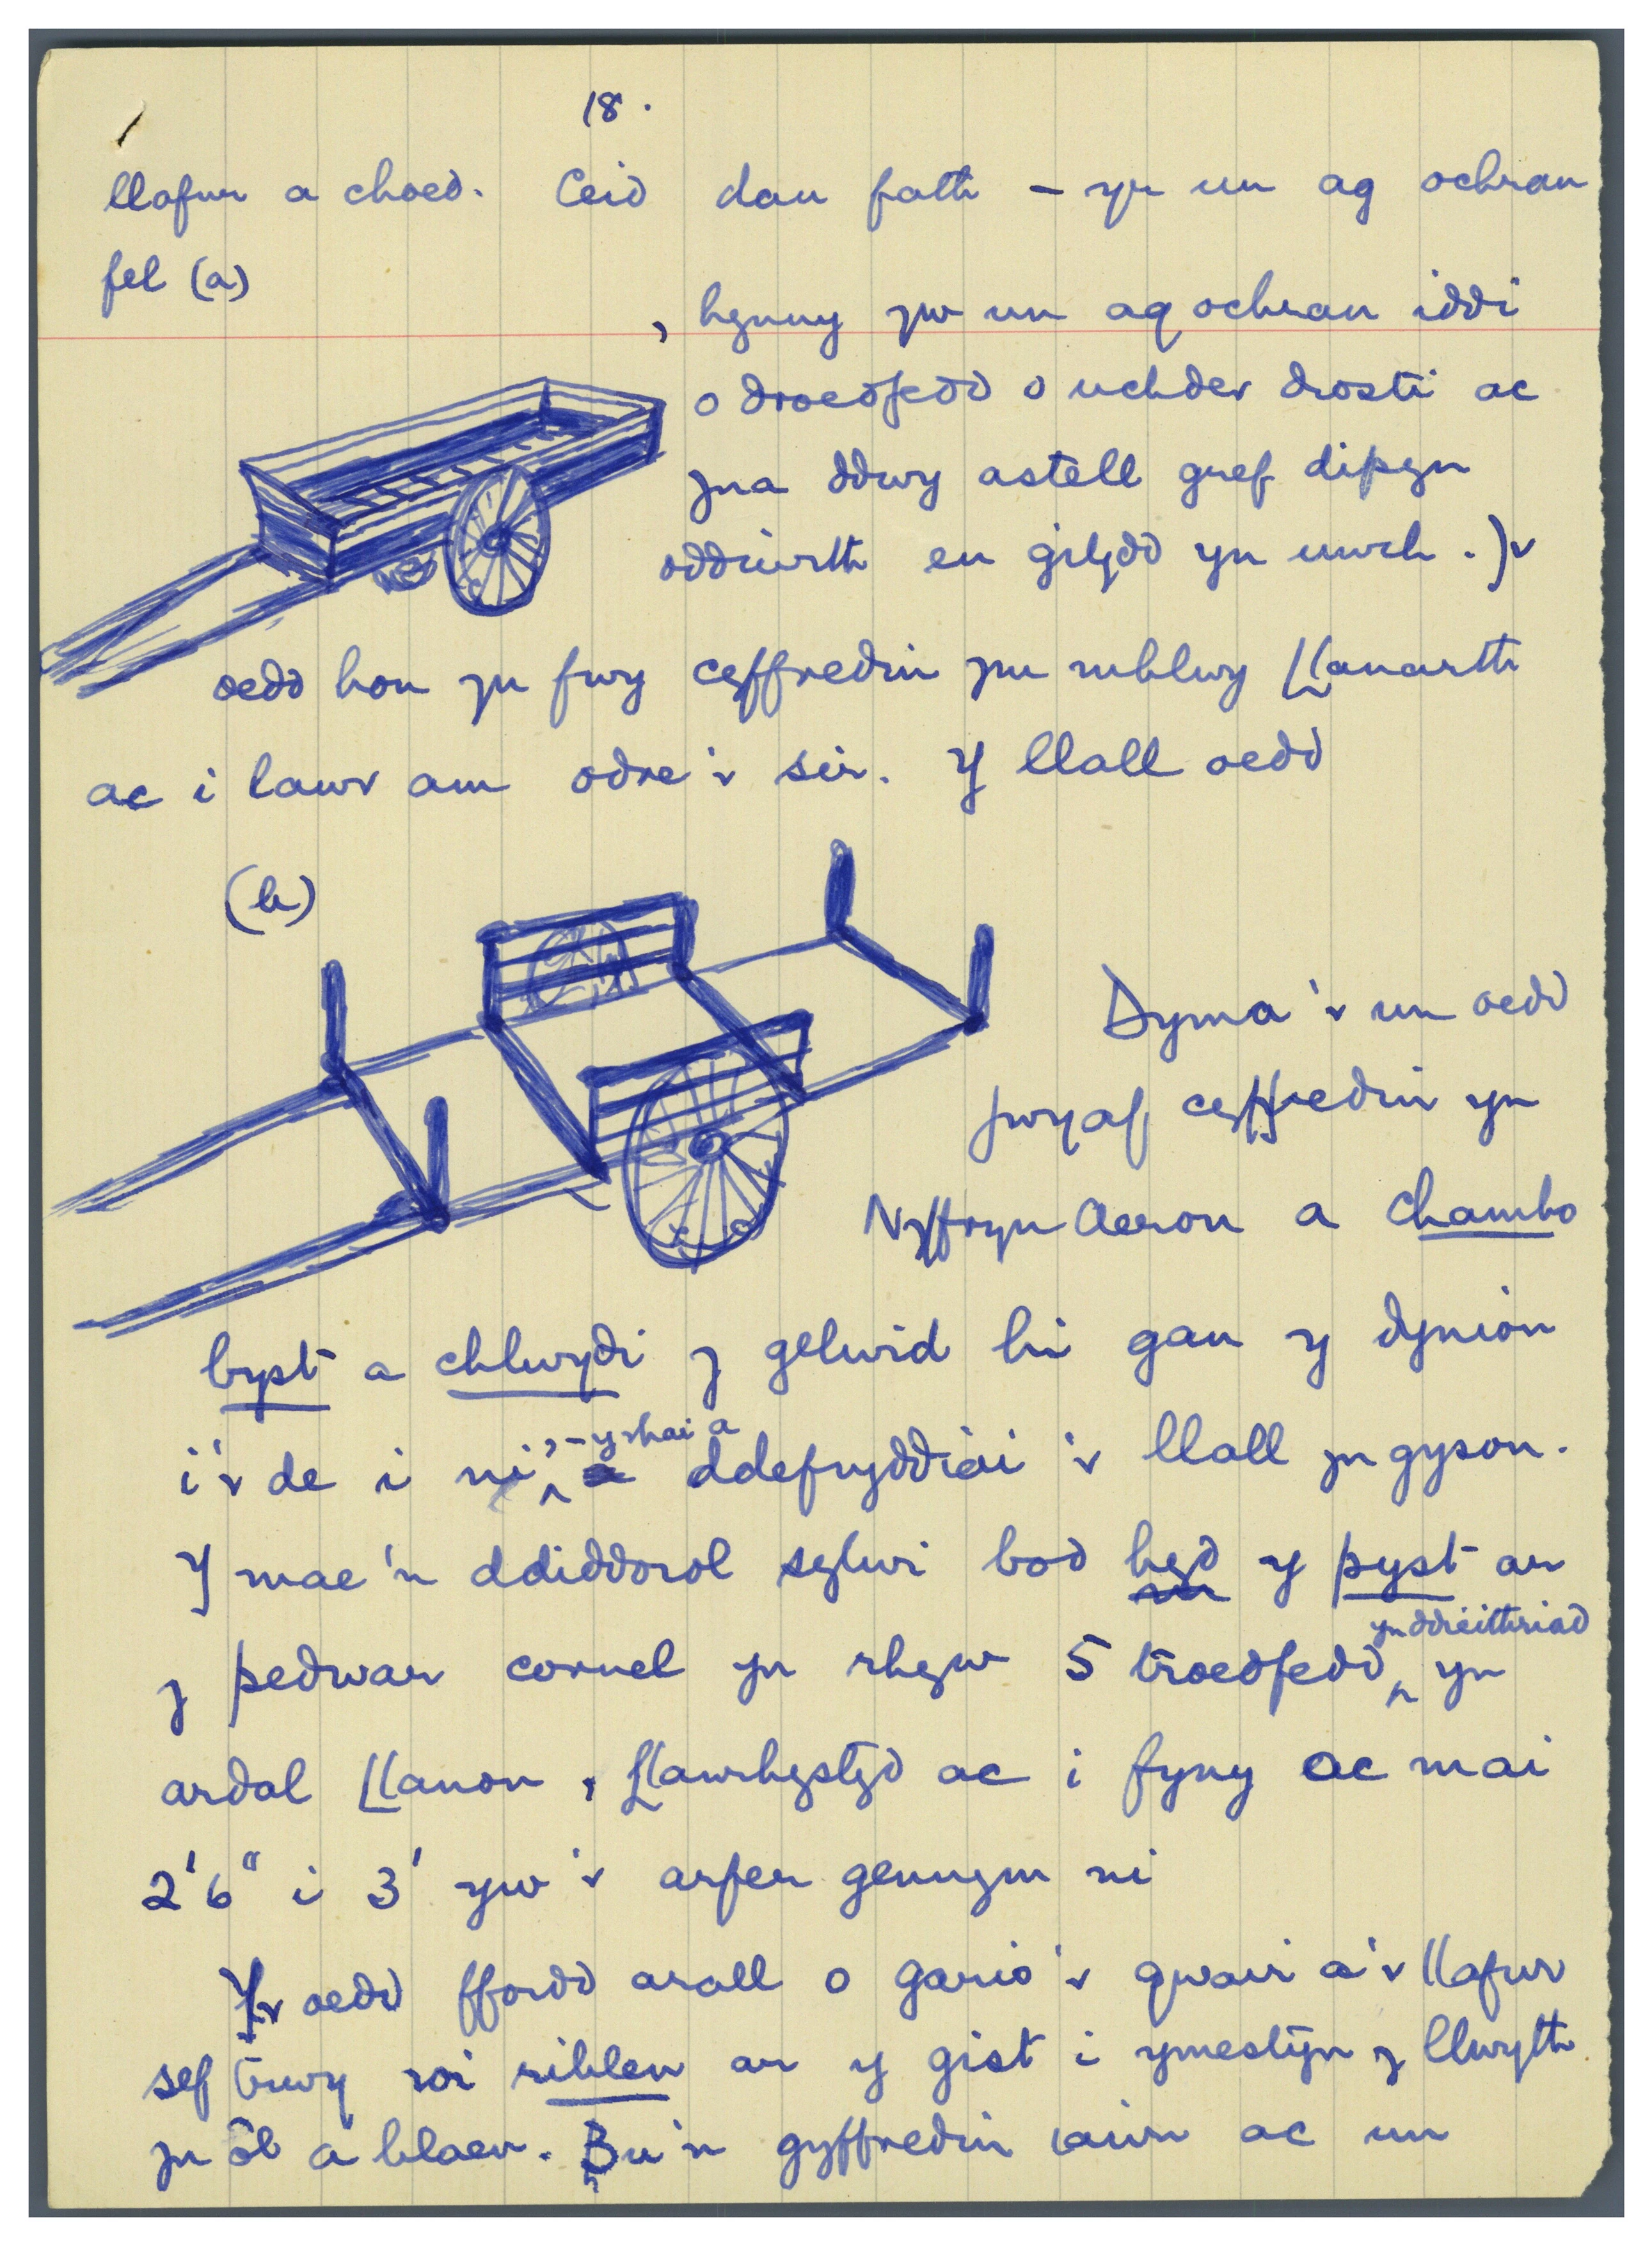 18.
llafur a choed. Ceid dau fath – yr un ag ochrau
fel (a)
, hynny yw un ag ochrau iddi
o droedfedd o uchder drosti ac
yna ddwy astell gref dipyn
oddiwrth eu gilydd yn uwch.) Yr
oedd hon yn fwy cyffredin ym mhlwy Llanarth
ac i lawr am odre'r sir. Y llall oedd
(b)
Dyma'r un oedd
fwyaf cyffredin yn
Nyffryn Aeron a Chambo
byst a chlwydi y gelwid hi gan y dynion
i'r de i ni, – y rhai a ddefnyddiai'r llall yn gyson.
Y mae'n ddiddorol sylwi bod hyd y pyst ar
y pedwar cornel yn rhyw 5 troedfedd yn ddieithriad yn
ardal Llanon, Llanrhystyd ac i fyny ac mai
2'6" i 3' yw'r arfer gennym ni
Yr oedd ffordd arall o gario'r gwair a'r llafur
sef trwy roi ribben ar y gist i ymestyn y llwyth
yn ôl a blaen. Bu'n gyffredin iawn ac un